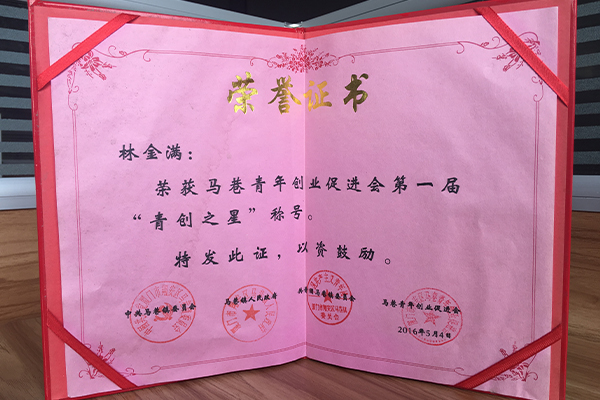 荣誉证书
林金满：
荣获马巷青年创业促进会第一届
“青创之星”称号。
特发此证，以资鼓励。
中共马巷镇委员会 马巷镇人民政府 共青团马巷镇委员会 马巷青年创业促进会
2016年5月4日